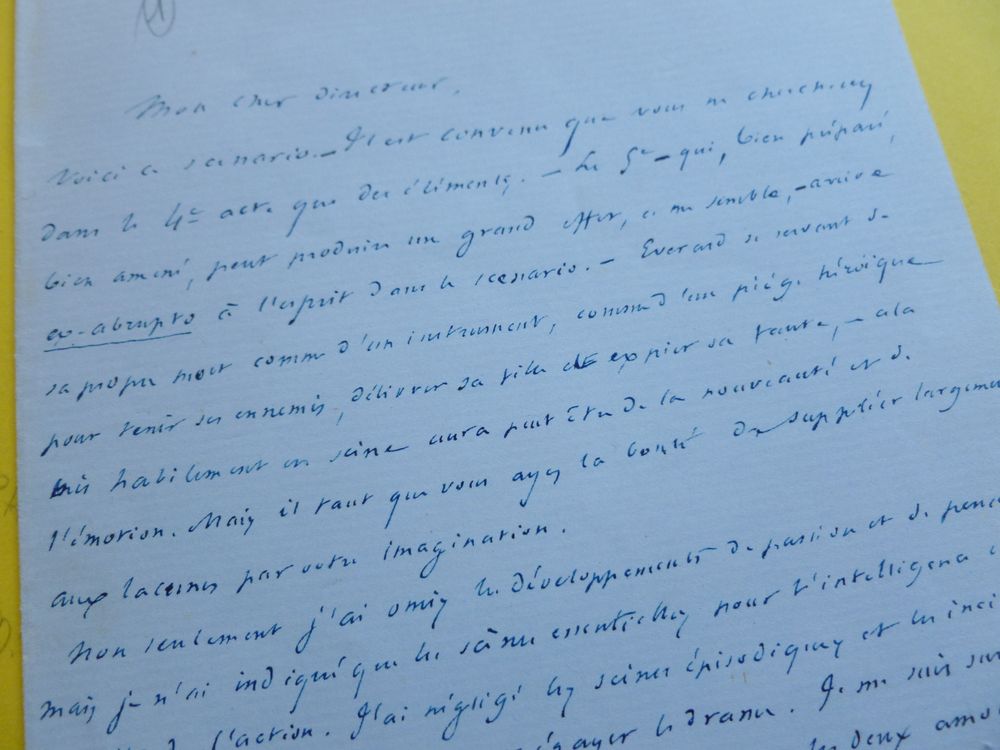 Mon cher directeur,
Voici ce scenario. – Il est convenu que vous ne chercherez
dans le 4e acte que des éléments. – Le 5e – qui, bien préparé,
bien amené, peut produire un grand effet, ce me semble, – arrive
ex-abrupto à l'esprit dans le scenario. – Everard se servant de
sa propre mort comme d'un instrument, comme d'un piége héroïque
pour tenir ses ennemis, délivrer sa fille et expier sa faute, – a la
mis habilement en scène aura peut être de la nouveauté et de
l'émotion. Mais il faut que vous ayez la bonté de suppléer largement
aux lacunes par votre imagination.
Non seulement j'ai omis les développements de passion et de
mais je n'ai indiqué que les scènes essentielles pour l'intelligence
l'action. J'ai négligé les scènes épisodiques et les
égayer le drame. Je me suis
les deux